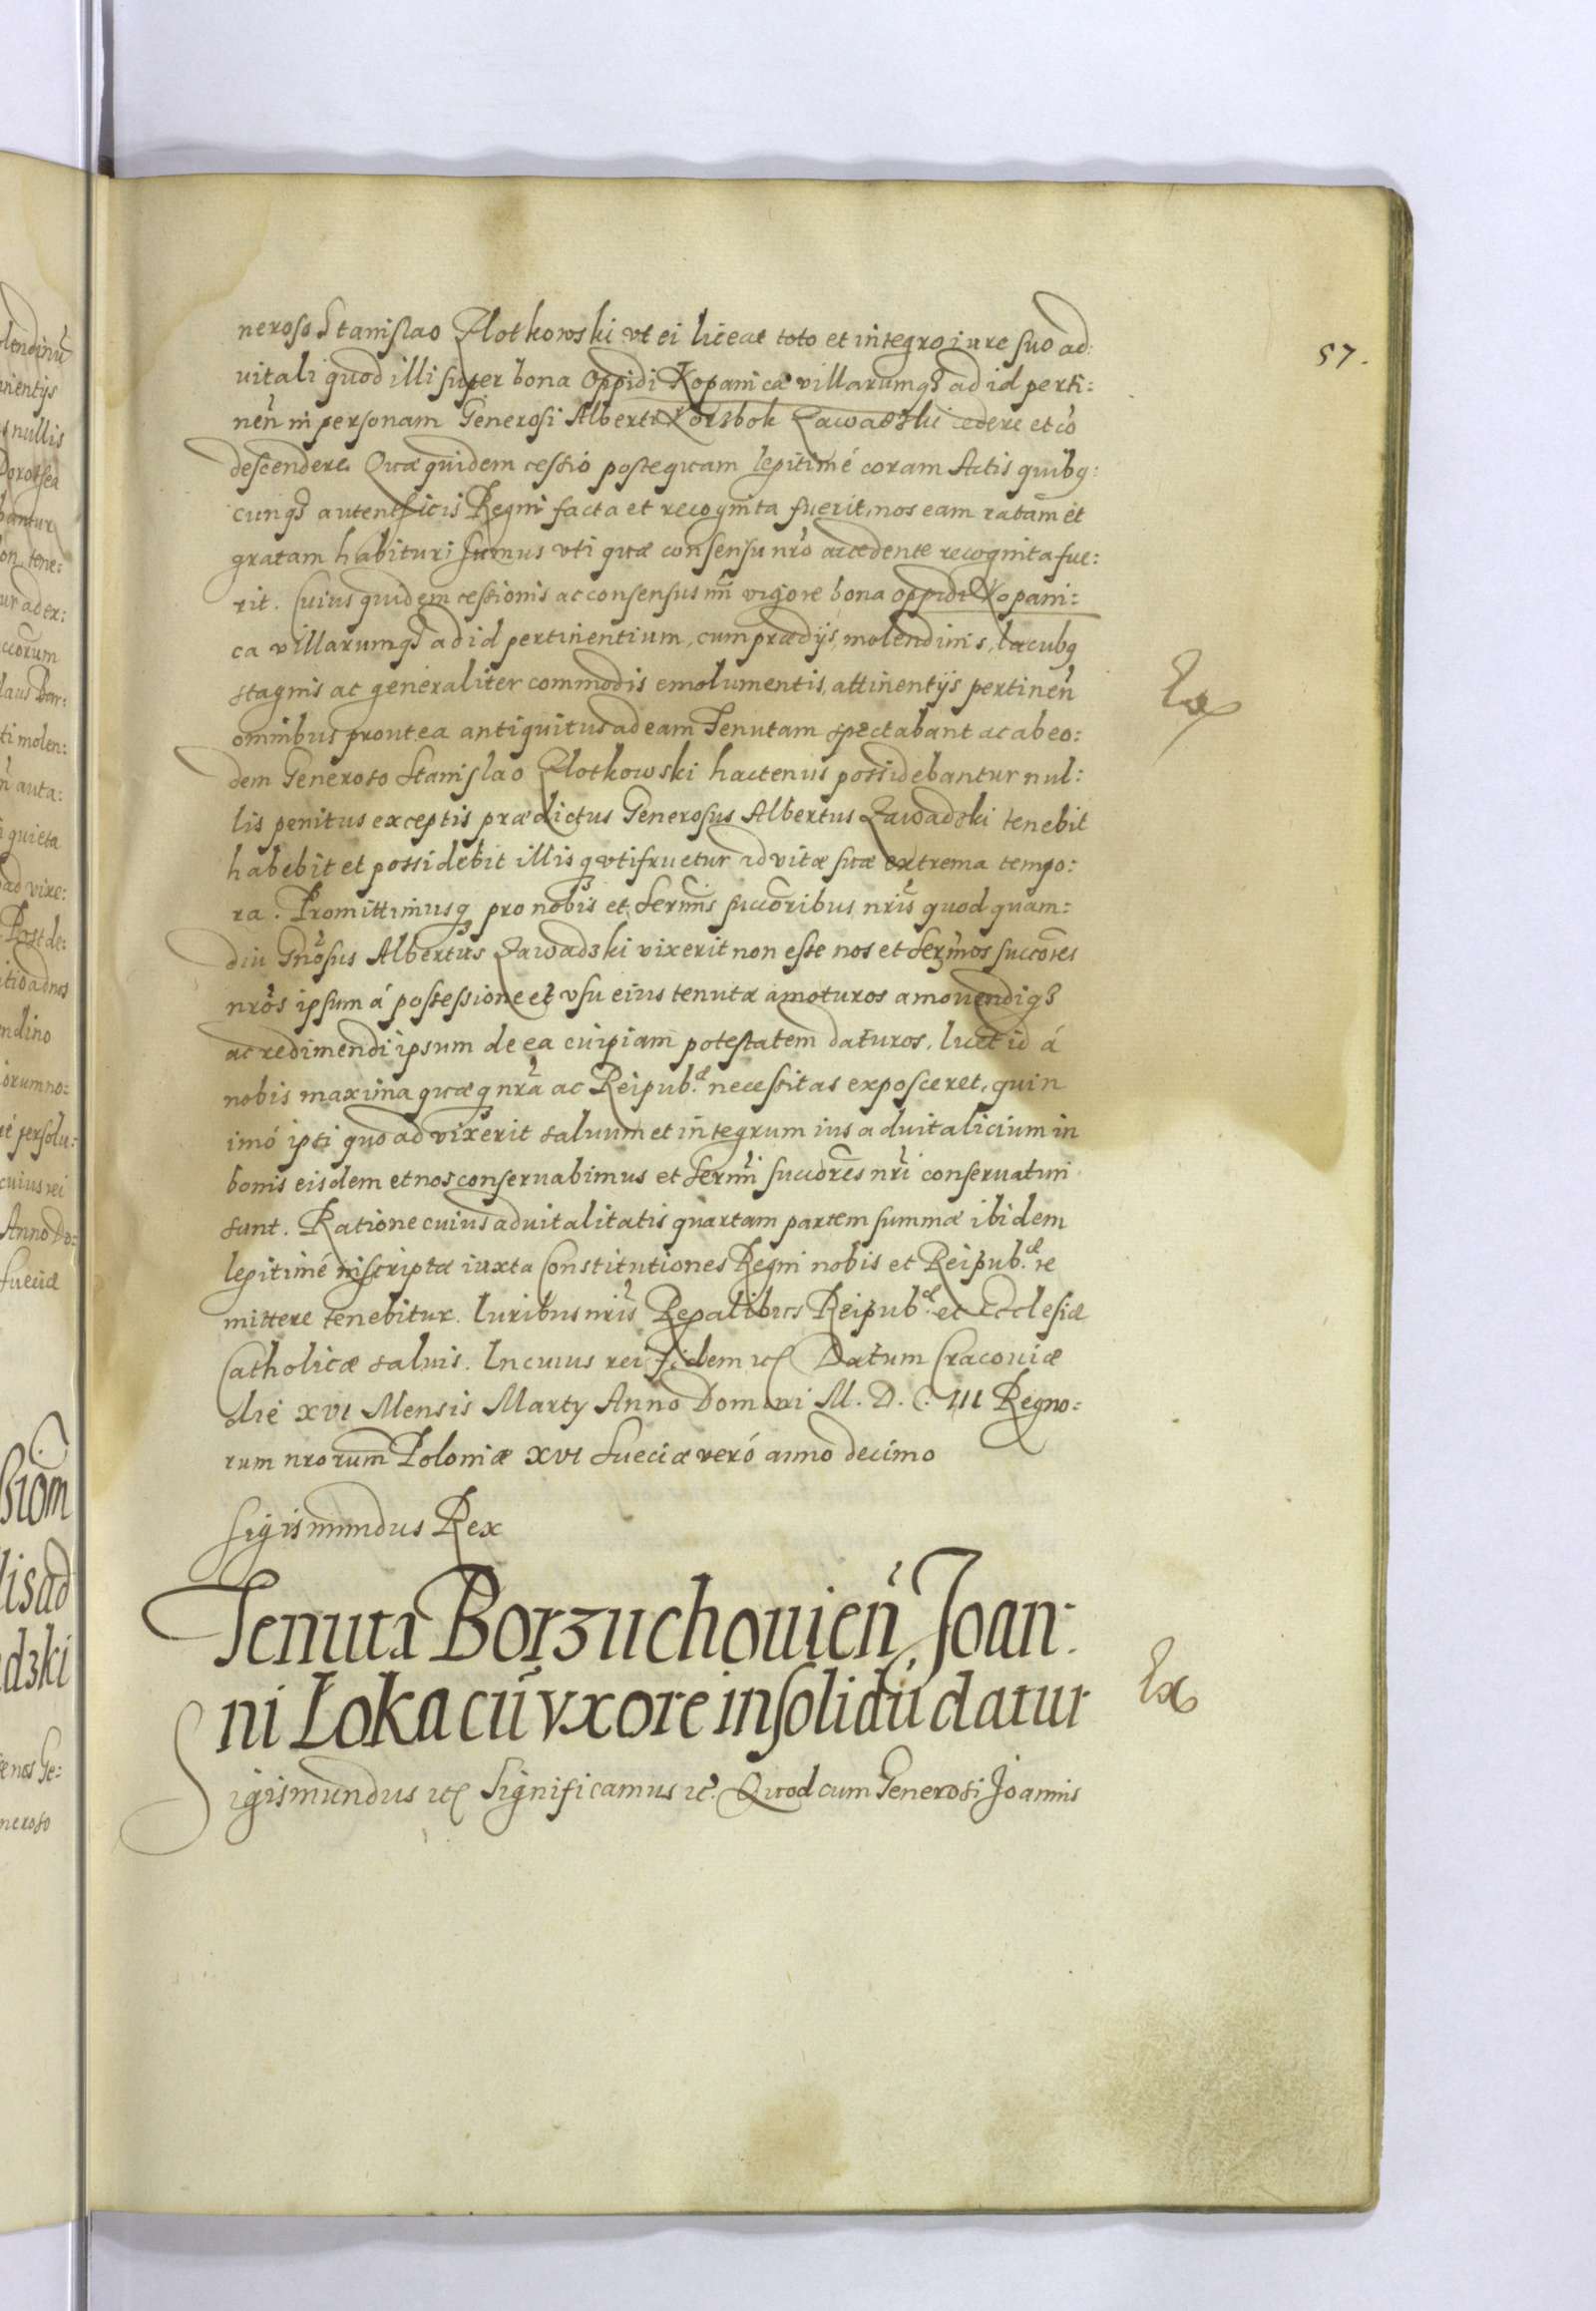 57.
neroso Stanislao Zlotkowski vt ei liceat toto et integro iure suo ad:
uitali quod illi super bona Oppidi Kopanicæ villarumq3 ad id perti:
neñ in personam Generosi Alberti Korzbok Zawadzki cedere et cõ
descendere. Quæ quidem cessio postequam legitimé coram Actis quibq:
cunq3 autenticis Regni facta et recognita fuerit, nos eam ratam et
gratam habituri sumus vti quæ consensu nrõ accedente recognita fue:
rit. Cuius quidem cessionis ac consensus nri vigore bona oppidi Kopani:
ca villarumq3 ad id pertinentium, cum prædijs, molendinis, lacubq
stagnis ac generaliter commodis emolumentis, attinentijs pertineñ
omnibus prout ea antiquitus ad eam Tenutam spectabant ac ab eo:
dem Generoso Stanislao Zlotkowski hactenus possidebantur nul:
lis penitus exceptis prædictus Generosus Albertus Zawadzki tenebit
habebit et possidebit illisq3 vtifruetur ad vitæ suæ extrema tempo:
ra. Promittimusq3 pro nobis et Sermis succoribus nris quod quam:
diu Gnosus Albertus Zawadzki vixerit non esse nos et Sermos succores
nros ipsum á possessione et vsu eius tenutæ amoturos amouendiq3
ac redimendi ipsum de ea cuipiam potestatem daturos, licet id á
nobis maxima quæq3 nra ac Reipub.æ necessitas exposceret, quin
imó ipsi quoad vixerit saluum et integrum ius aduitalicium in
bonis eisdem et nos conseruabimus et Sermi succores nri conseruaturi
sunt. Ratione cuius aduitalitatis quartam partem summæ ibidem
legitimé inscriptæ iuxta Constitutiones Regni nobis et Reipub.æ re
mittere tenebitur. Iuribus nris Regalibus Reipub.æ et Ecclesiæ
Catholicæ saluis. In cuius rei fidem etc Datum Cracouiæ
die XVI Mensis Marty Anno Domini M. D. C. III Regno:
rum nrorum Poloniæ XVI Sueciæ veró anno decimo
Sigismundus Rex
Tenuta Borzuchouień Joan:
ni Loka cũ vxore insolidũ datur
Sigismundus etc Significamus etc. Quod cum Generosi Joannis